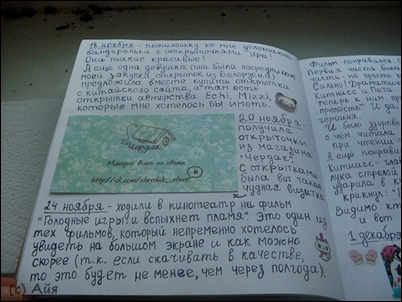 18 ноября - потихоньку ко мне долетают
бандерольки с открыточками. Ура!
Они такие красивые!
А ещё одна девушка (она была посредником
моей закупки открыток из Белоруссии)
предложила вместе купить открытки
с китайского сайта, а там есть
открытки авторства Echi, Mizzi,
которые мне хотелось бы иметь.
20 ноября -
получила
открыточки
из магазина
"Чердак".
С открытками
была вот такая
чудная визитка
Чердак
Минуя всего на свете
http://vk.com/cherdak_store
24 ноября - ходили в кинотеатр на фильм
"Голодные игры: и вспыхнет пламя". Это один из
тех фильмов, который непременно хотелось
увидеть на большом экране и как можно
скорее (т.к. если скачивать в качестве,
то это будет не менее, чем через полгода).
Фильм понравился. С
Первая часть была
часть - не просто
Сильно! Драматично
Китнисс и Пита
теперь к ним пр
ненависть. И да
героини.
И было здорово
чем читала
при чтении
А ещё понрави
Китнисс - глаз
пука стрелой
ударила в к
крикнул -
Видимо кт
и вот
1 декабря
(c) Айя